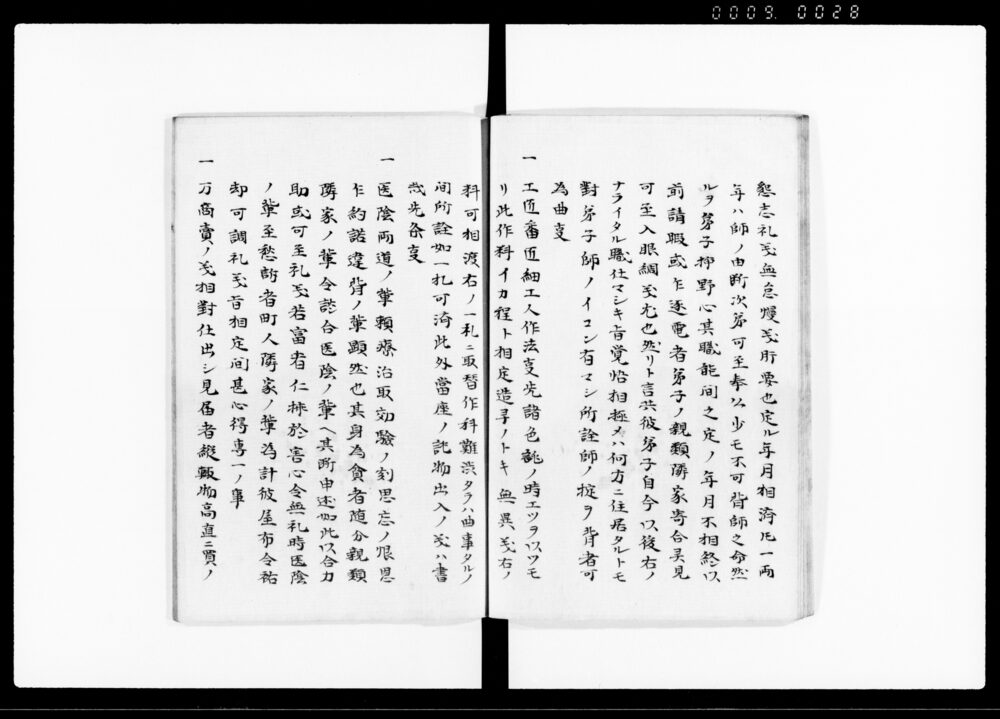 0009. 0028
懇志礼義無怠慢義肝要也定ル年月相済圧一両
年ハ師ノ由断次第可至奉公少モ不可背師之命然
ルヲ弟子挿野心其職能間之定ノ年月不相終以
前請暇或乍逐電者弟子ノ親類隣家寄合異見
可至入眼綢義尤也然リト言共彼弟子自今以後右ノ
ナライタル職仕マシキ旨覚悟相極メハ何方ニ住居タルトモ
対弟子師ノイコン有マシ所詮師ノ掟ヲ背者可
為曲㕝
一 工匠番匠細工人作法㕝先諸色誂ノ時エツヲ以ツモ
リ此作料イカ程ト相定造尋ノトキ無異義右ノ
料可相渡右ノ一札ニ取替作料難渋タラハ曲事タルノ
間所詮如一札可済此外當座ノ誂物出入ノ義ハ書
載先条㕝
一 医陰両道ノ輩頼療治取効験ノ刻思忘ノ恨思
乍約諾違背ノ輩顕然也其身為貧者随分親類
隣家ノ輩令談合医陰ノ輩ヘ其断申述如此以合力
助或可至礼義若富者仁挿於害心令無礼時医陰
ノ輩至愁訴者町人隣家ノ輩為計彼屋布令沽
却可調礼義旨相定間甚心得専一ノ事
一 万商賣ノ義相對仕出シ見届者縦販物高直ニ買ノ